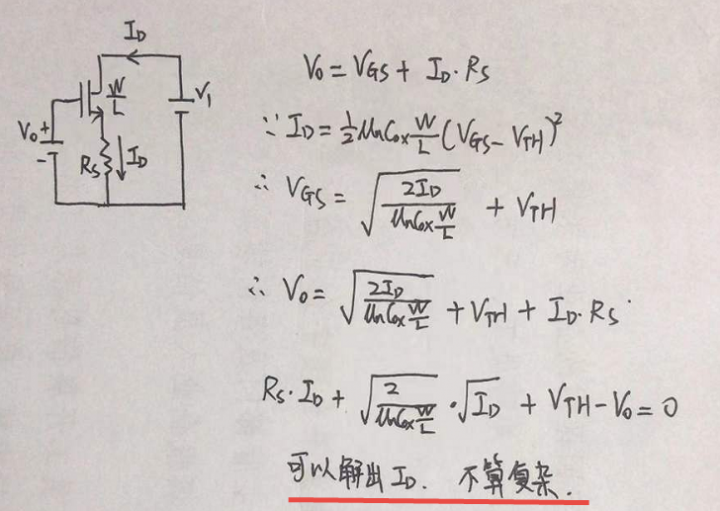 I_D
W/L
V_1
V_0 +
-
R_S
I_D
V_0 = V_GS + I_D · R_S
∵ I_D = 1/2 μnCox W/L (V_GS - V_TH)^2
∴ V_GS = √(2I_D / (μnCox W/L)) + V_TH
∴ V_0 = √(2I_D / (μnCox W/L)) + V_TH + I_D · R_S
R_S · I_D + √(2 / (μnCox W/L)) · √I_D + V_TH - V_0 = 0
可以解出 I_D. 不算复杂.